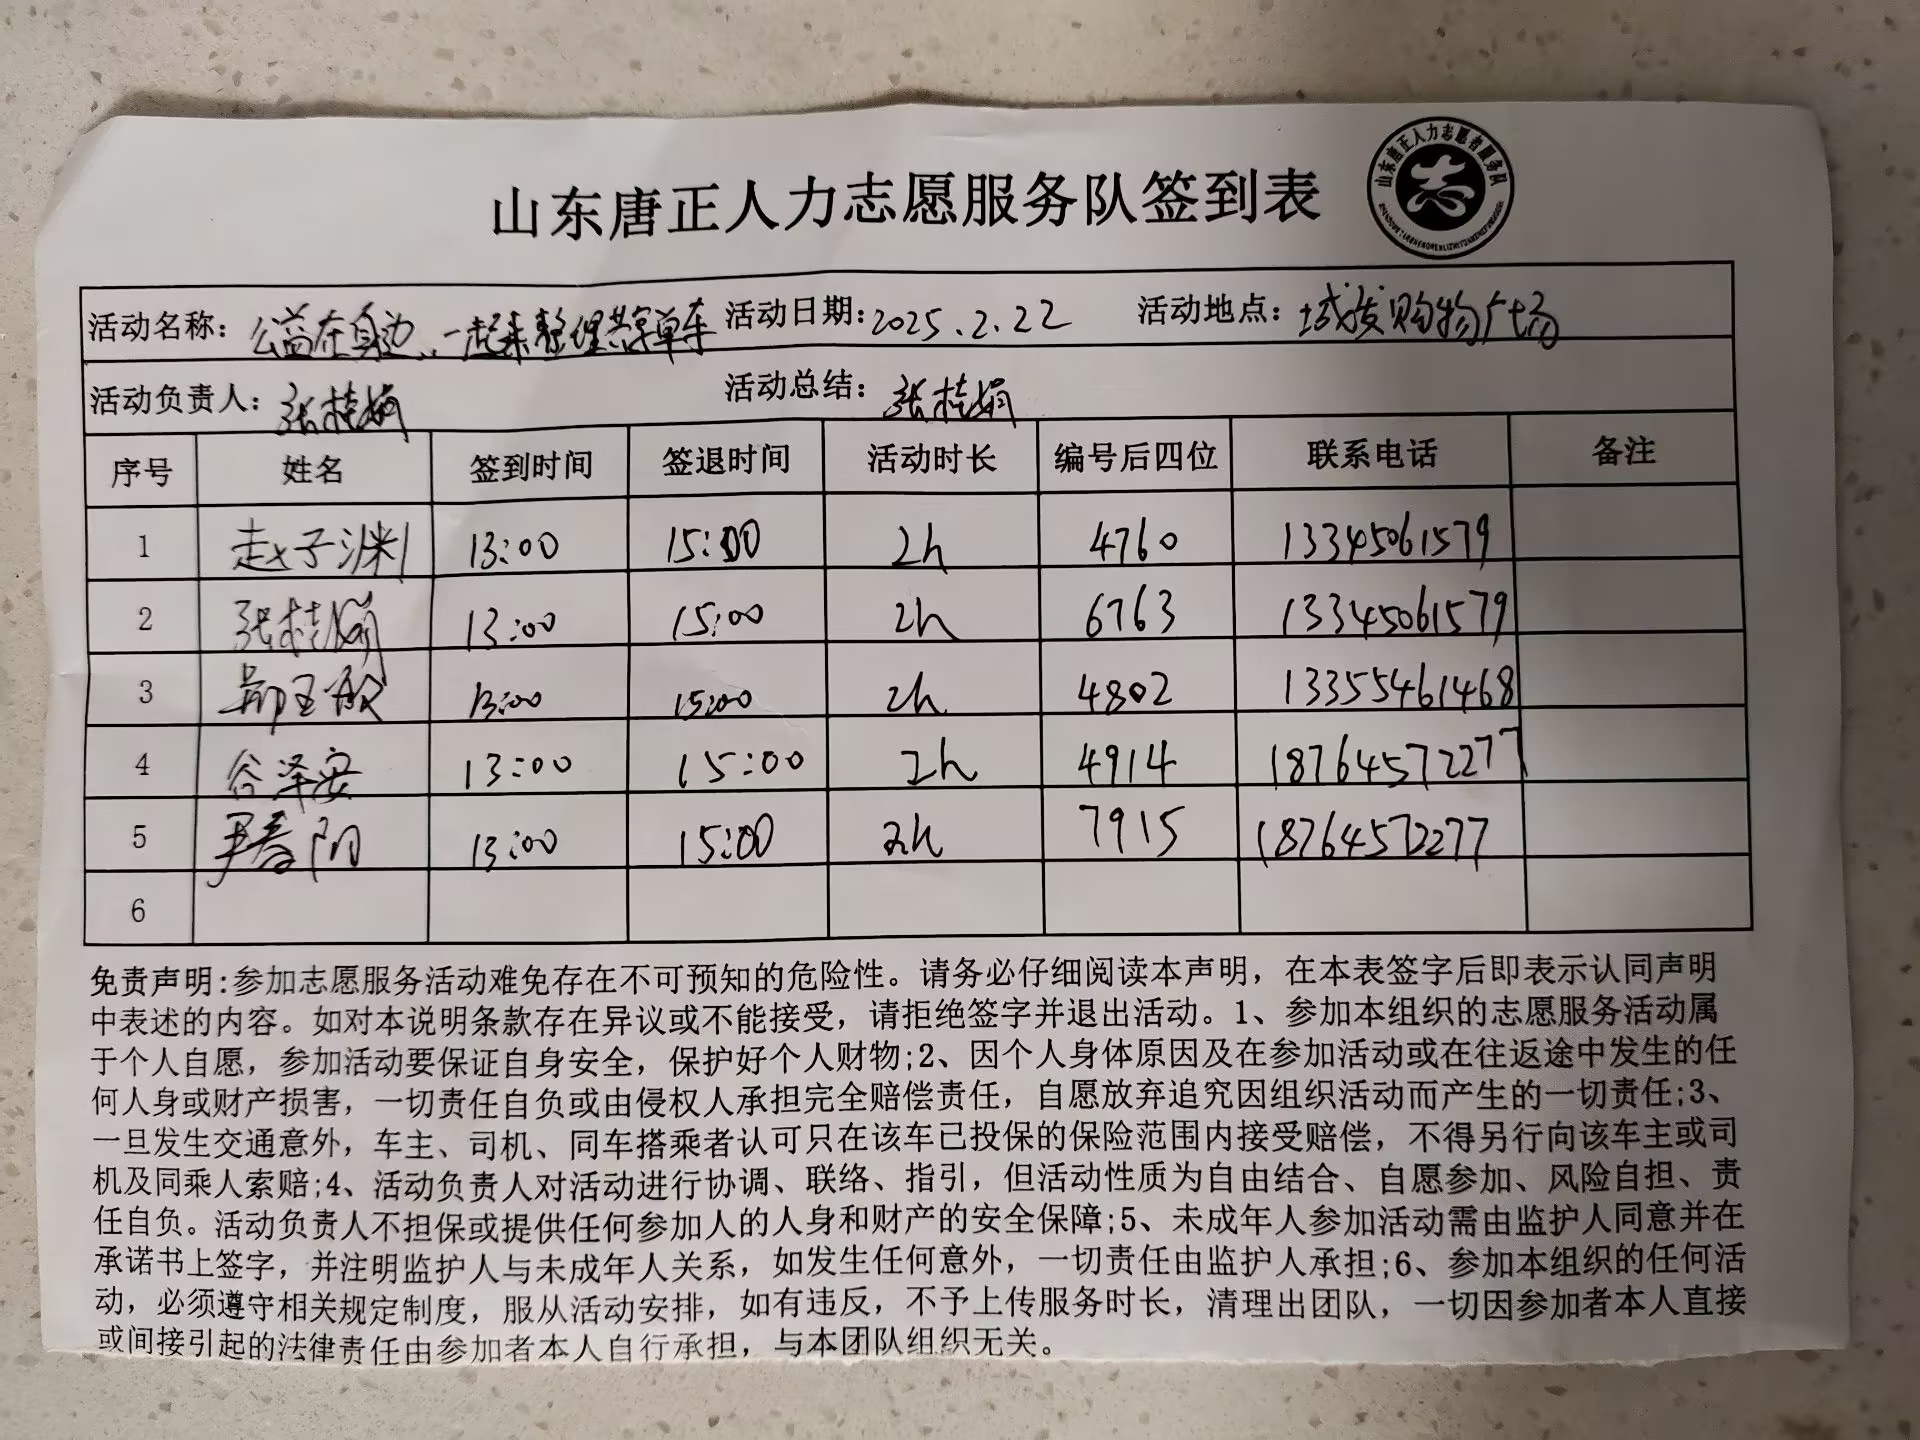 山东唐正人力志愿服务队签到表
山东唐正人力志愿者服务队
活动名称：公益在身边，一起来整理共享单车 活动日期：2025.2.22 活动地点：城发购物广场
活动负责人：张桂娟 活动总结：张桂娟
序号 姓名 签到时间 签退时间 活动时长 编号后四位 联系电话 备注
1 赵子渊 13:00 15:00 2h 4760 13345061579
2 张桂娟 13:00 15:00 2h 6763 13345061579
3 13:00 15:00 2h 4802 13355461468
4 谷泽安 13:00 15:00 2h 4914 18764572277
5 尹春阳 13:00 15:00 2h 7915 18764572277
6
免责声明:参加志愿服务活动难免存在不可预知的危险性。请务必仔细阅读本声明，在本表签字后即表示认同声明
中表述的内容。如对本说明条款存在异议或不能接受，请拒绝签字并退出活动。1、参加本组织的志愿服务活动属
于个人自愿，参加活动要保证自身安全，保护好个人财物;2、因个人身体原因及在参加活动或在往返途中发生的任
何人身或财产损害，一切责任自负或由侵权人承担完全赔偿责任，自愿放弃追究因组织活动而产生的一切责任;3、
一旦发生交通意外，车主、司机、同车搭乘者认可只在该车已投保的保险范围内接受赔偿，不得另行向该车主或司
机及同乘人索赔;4、活动负责人对活动进行协调、联络、指引，但活动性质为自由结合、自愿参加、风险自担、责
任自负。活动负责人不担保或提供任何参加人的人身和财产的安全保障;5、未成年人参加活动需由监护人同意并在
承诺书上签字，并注明监护人与未成年人关系，如发生任何意外，一切责任由监护人承担;6、参加本组织的任何活
动，必须遵守相关规定制度，服从活动安排，如有违反，不予上传服务时长，清理出团队，一切因参加者本人直接
或间接引起的法律责任由参加者本人自行承担，与本团队组织无关。